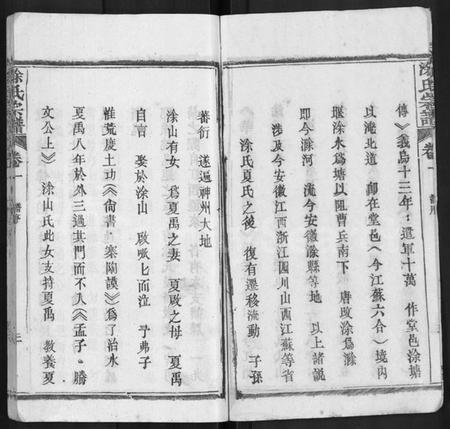 涂氏宗譜
卷一
傳》義烏十三年：遣軍十萬　作堂邑涂塘
以淹北道　卽在堂邑《今江蘇六合》境內
堰涂水爲塘以阻曹兵南下　唐改涂爲滁
卽今滁河　流今安徽滁縣等地　以上諸說
涉及今安徽江西浙江四川山西江蘇等省
涂氏夏氏之後　復有遷移流動　子孫
蕃衍　遂遍神州大地
涂山有女　爲夏禹之妻　夏啟之母　夏禹
自言　娶於涂山　啟呱匕而泣　予弗子
惟荒度土功《尚書·皋陶謨》爲了治水
夏禹八年於外三過其門而不入《孟子·勝
文公上》　涂山氏此女支持夏禹　敎養夏
涂氏宗譜
卷一
三